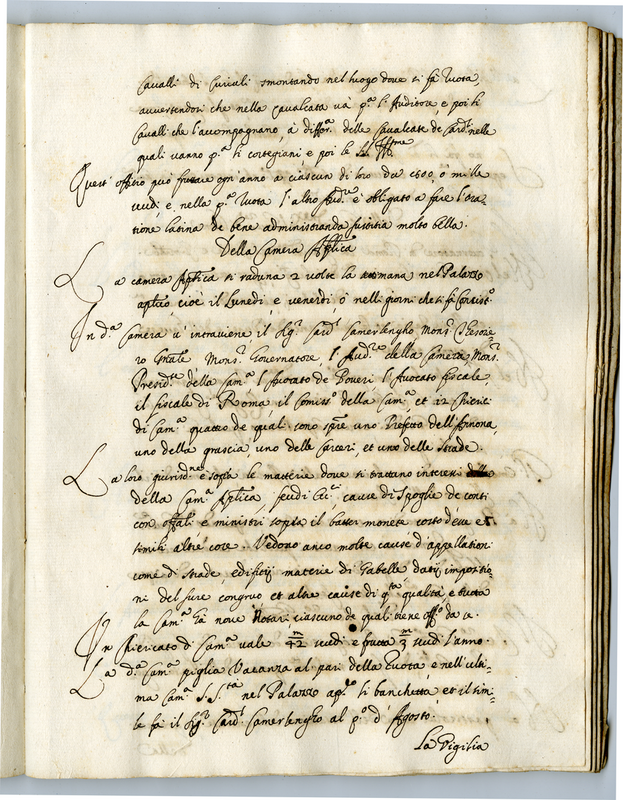 Cavalli di Curiali smontando nel luogo doue si fà Ruota,
auuertendosi che nella Caualcata uà p.º l'Auditore, e poi li
Caualli che l'accompagnano, à differ.ª delle Caualcate de Card.li nelle
quali uanno p.ª li cortegiani, e poi le
Quest' offitio può fruttare ogni anno à ciascun di loro da 800, ò mille
scudi, e nella p.ª Ruota l'altro Aud.re è obligato a fare l'ora=
tione latina de bene administranda Iustitia molto bella.
Della Camera Aplica
La camera Aplica si raduna 2 uolte la settimana nel Palazzo
aplico, cioè il Lunedi, e uenerdi, ò nelli giorni che si fà Concist.º
In d.ª Camera u' interuiene il Sig.r Card. Camerlengho Mons.r Thesorie=
ro Gnale Mons.r Gouernatore l'Aud.re della Camera Mons.r
Presid.te della Cam.ª l'Auocato de Poueri, l'Auocato fiscale,
il fiscale di Roma il Comiss.º della Cam.ª et 12 Chierici
di Cam.ª quattro de quali sono sempre uno Prefetto dell'Annona,
uno della grascia, uno delle Carceri, et uno delle strade.
La loro giurisd.ne è sopra le materie doue si trattano interessi
della Cam.ª Aplica, feudi Ecc.ci, cause di Spoglie de conti
con offitiali e ministri sopra il batter monete costo d'esse et
simili altre cose. Vedono anco molte cause d'appellationi
come di strade edifitij materie di Gabelle datij impositio=
ni del sure congruo et altre cause di q.ta qualità, e tutta
la Cam.ª hà noue Notari ciascuno de quali tiene off.º da se.
Un Chiericato di Cam.ª uale 42 m scudi e frutta 3 m scudi l'anno.
La d.ª Cam.ª piglia Vacanza al pari della Ruota, e nell'ulti=
ma Cam.ª S. S.tà nel Palazzo ap.co li banchetta, et il sim=
le fà il Sig.r Card. Camerlengho al p.º d'Agosto.
La Vigilia